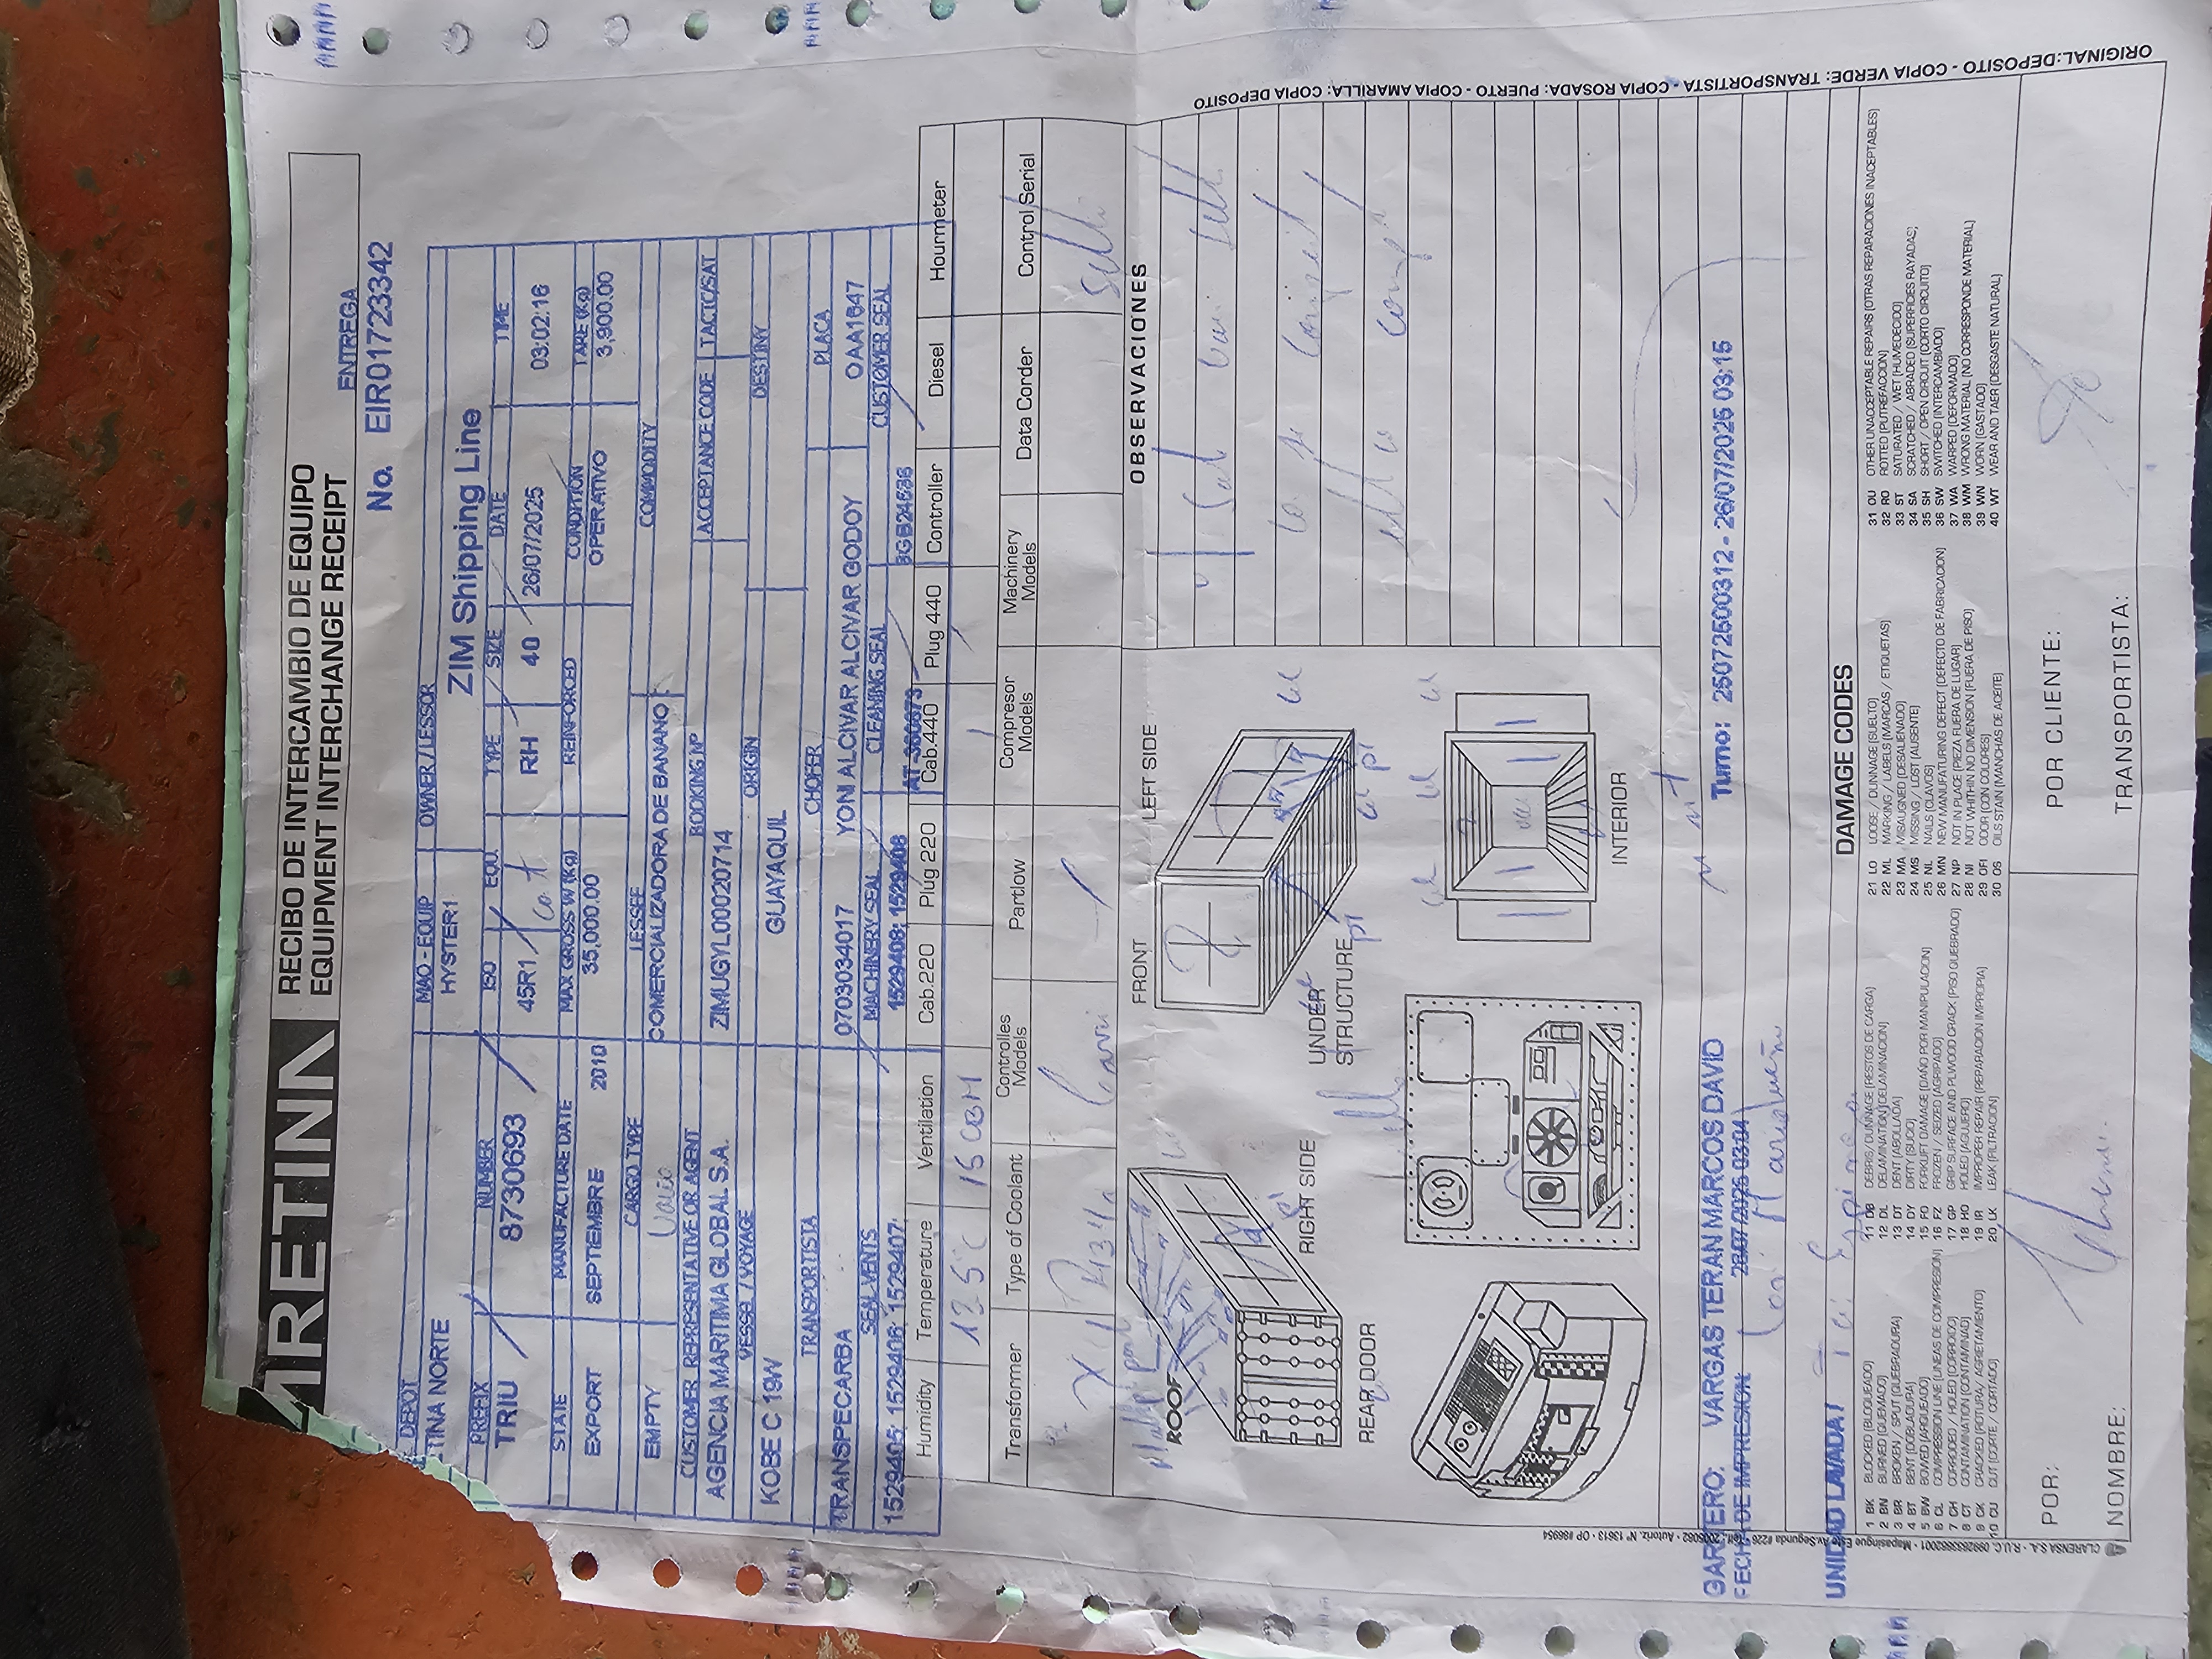 ARETINA
RECIBO DE INTERCAMBIO DE EQUIPO
EQUIPMENT INTERCHANGE RECEIPT
ENTREGA
No. EIR01723342
DEPOT MAQ - EQUIP OWNER / LESSOR
TINA NORTE HYSTER1 ZIM Shipping Line
PREFIX NUMBER ISO EQU. TYPE SIZE DATE TIME
TRIU 8730693 45R1 RH 40 26/07/2025 03:02:16
STATE MANUFACTURE DATE MAX GROSS W (Kg) REINFORCED CONDITION TARE (Kg)
EXPORT SEPTIEMBRE 2010 35,000.00 OPERATIVO 3,900.00
CARGO TYPE LESSEE COMMODITY
EMPTY Vacio COMERCIALIZADORA DE BANANO
CUSTOMER REPRESENTATIVE OR AGENT BOOKING Nº ACCEPTANCE CODE TACTC/SAT
AGENCIA MARITIMA GLOBAL S.A. ZIMUGYL00020714
VESSEL / VOYAGE ORIGIN DESTINY
KOBE C 19W GUAYAQUIL
TRANSPORTISTA CHOFER PLACA
TRANSPECARBA 0703034017 YONI ALCIVAR ALCIVAR GODOY OAA1647
SEAL VENTS MACHINERY SEAL CLEANING SEAL CUSTOMER SEAL
1529405; 1529406; 1529407; 1529408; 1529408 AT-360873
Humidity Temperature Ventilation Cab.220 Plug 220 Cab.440 Plug 440 Controller Diesel Hourmeter
13.5°C 15 CBM
Transformer Type of Coolant Controlles Models Partlow Compresor Models Machinery Models Data Corder Control Serial
R134a
ROOF
FRONT
LEFT SIDE
OBSERVACIONES
RIGHT SIDE
UNDER STRUCTURE
REAR DOOR
INTERIOR
GARITERO: VARGAS TERAN MARCOS DAVID
Turno: 25072500312 - 26/07/2025 03:15
FECHA DE IMPRESION: 26/07/2025 03:04
UNIDAD LAVADA /
DAMAGE CODES
1 BK BLOCKED (BLOQUEADO)
2 BN BURNED (QUEMADO)
3 BR BROKEN / SPUT (QUEBRADURA)
4 BT BENT (DOBLADURA)
5 BW BOWED (ARQUEADO)
6 CL COMPRESSION LINE (LINEAS DE COMPRESION)
7 CH CORRODED / HOLED (CORROIDO)
8 CT CONTAMINATION (CONTAMINAD)
9 CK CRACKED (ROTURA/ AGRIETAMIENTO)
10 CU CUT (CORTE / CORTADO)
11 DB DEBRIS/DUNNAGE (RESTOS DE CARGA)
12 DL DELAMINATION (DELAMINACION)
13 DT DENT (ABOLLADA)
14 DY DIRTY (SUCIO)
15 FO FORKLIFT DAMAGE (DAÑO POR MANIPULACION)
16 FZ FROZEN / SEIZED (AGRIPADO)
17 GP GRIP SURFACE AND PLWOOD CRACK (PISO QUEBRADO)
18 HO HOLED (AGUJERO)
19 IR IMPROPER REPAIR (REPARACION IMPROPIA)
20 LK LEAK (FILTRACION)
21 LO LOOSE / DUNNAGE (SUELTO)
22 ML MARKING / LABELS (MARCAS / ETIQUETAS)
23 MA MISAUGNED (DESALIENADO)
24 MS MISSING / LOST (AUSENTE)
25 NL NAILS (CLAVOS)
26 MN NEW MANUFATURING DEFECT (DEFECTO DE FABRICACION)
27 NP NOT IN PLACE (PIEZA FUERA DE LUGAR)
28 NI NOT WHITHIN NO DIMENSION (FUERA DE PISO)
29 OFI ODOR (CON COLORES)
30 OS OILS STAIN (MANCHAS DE ACEITE)
31 OU OTHER UNACCEPTABLE REPAIRS (OTRAS REPARACIONES INACEPTABLES)
32 RO ROTTED (PUTREFACCION)
33 ST SATURATED / WET (HUMEDECIDO)
34 SA SCRATCHED / ABRADED (SUPERFICIES RAYADAS)
35 SH SHORT / OPEN CIRCUIT (CORTO CIRCUITO)
36 SW SWITCHED (INTERCAMBIADO)
37 WA WARPED (DEFORMADO)
38 WM WRONG MATERIAL (NO CORRESPONDE MATERIAL)
39 WN WORN (GASTADO)
40 WT WEAR AND TAER (DESGASTE NATURAL)
POR:
POR CLIENTE:
NOMBRE:
TRANSPORTISTA:
ORIGINAL:DEPOSITO - COPIA VERDE: TRANSPORTISTA - COPIA ROSADA: PUERTO - COPIA AMARILLA: COPIA DEPOSITO